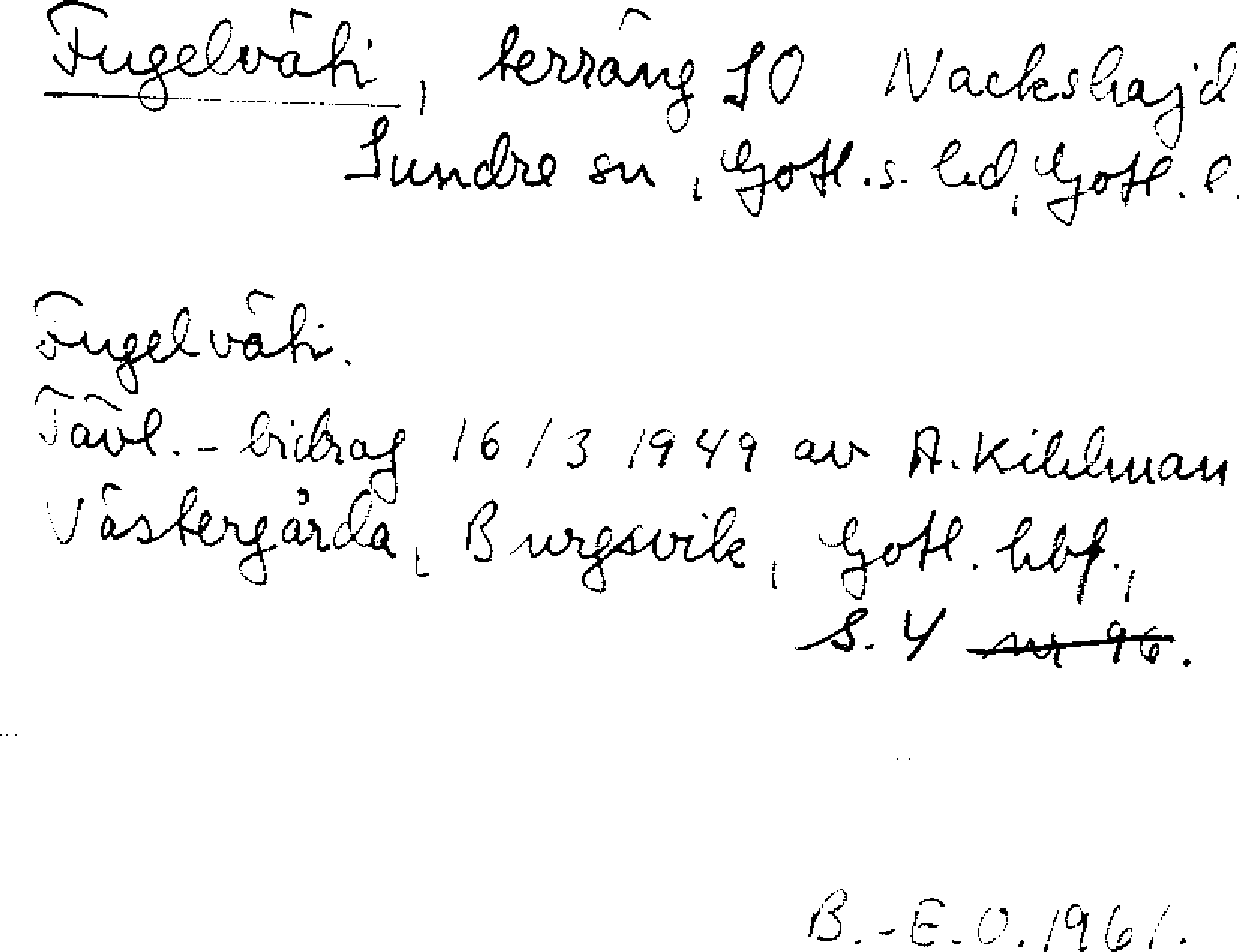 Fugelväti, terräng SO Nackshajd
Sundre sn, Gotl. s. hd, Gotl. l.
Fugelväti.
Tävl.-bidrag 16/3 1949 av A. Kihlman
Västergårda, Burgsvik, Gotl. hbf.,
S. 4 nr 96.
B.-E.O. 1961.